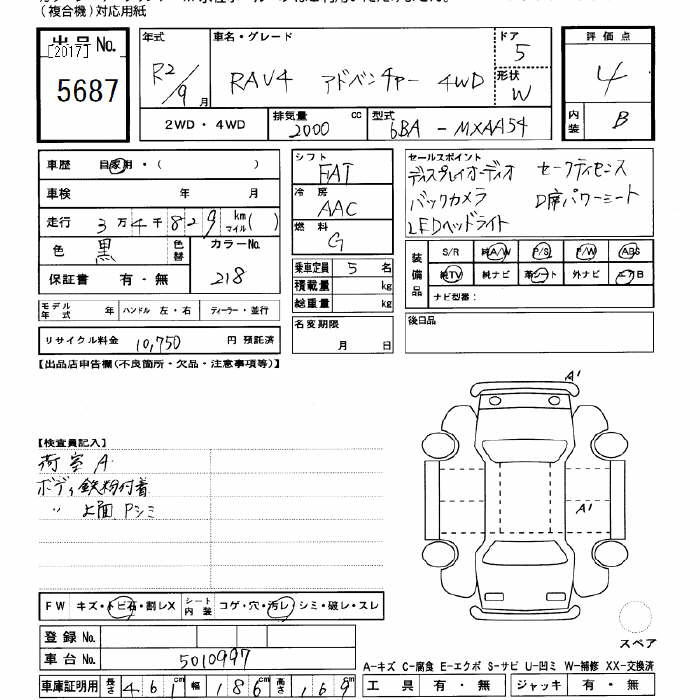 (複合機)対応用紙
出品No.
[2017]
5687
年式 R2/9月
車名・グレード RAV4 アドベンチャー 4WD
ドア 5
形状 W
評価点 4
内装 B
2WD・4WD
排気量 2000 cc
型式 6BA-MXAA54
車歴 自家用・( )
車検 年 月
走行 3万4千829km マイル( )
色 黒 色替
カラーNo. 218
保証書 有・無
モデル年式 年 ハンドル 左・右 ディーラー・並行
リサイクル料金 10,750 円 預託済
シフト FAT
冷房 AAC
燃料 G
乗車定員 5 名
積載量 kg
総重量 kg
名変期限
月 日
セールスポイント
ディスプレイオーディオ セーフティセンス
バックカメラ D席パワーシート
LEDヘッドライト
装備品
S/R 純A/W P/S P/W ABS
純TV 純ナビ 革シート 外ナビ エアB
ナビ型番:
後日品
【出品店申告欄(不良箇所・欠品・注意事項等)】
【検査員記入】
荷室A
ボディ鉄粉付着
〃 上面Pシミ
A'
A'
FW キズ・トビ石・割レX
シート内装 コゲ・穴・汚レ・シミ・破レ・スレ
登録No.
車台No. 5010997
車庫証明用 長さ 461cm 幅 186cm 高さ 169cm
スペア
A-キズ C-腐食 E-エクボ S-サビ U-凹ミ W-補修 XX-交換済
工具 有・無 ジャッキ 有・無